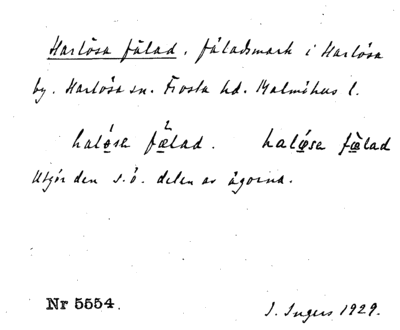 Harlösa fälad, fäladsmark i Harlösa
by. Harlösa sn. Frosta hd. Malmöhus l.
haló̱sa fæ̱lad. halǿ̱sa fæ̱lad
Utgör den s.ö. delen av ägorna.
Nr 5554. I. Ingers 1929.